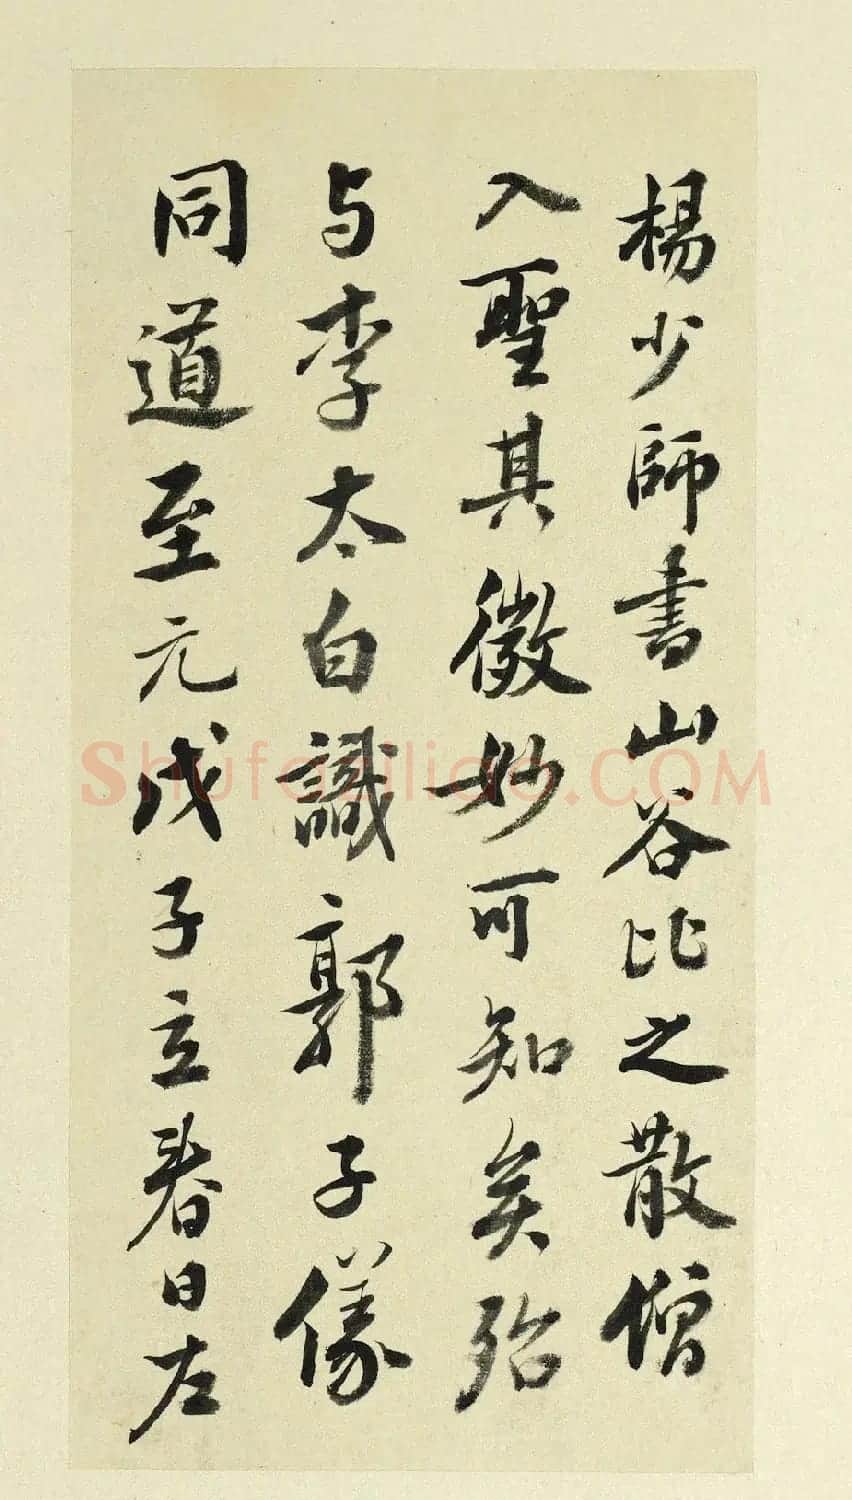 楊少師書山谷比之散僧
入聖其微妙可知矣殆
与李太白識郭子儀
同道至元戊子立春日左
Shufaziliao.COM